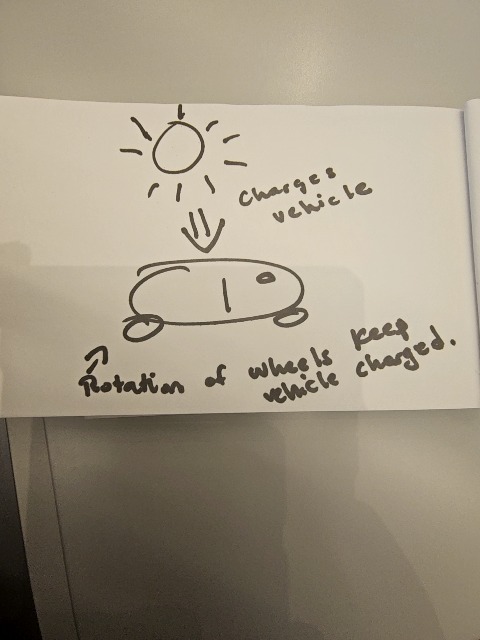 Charges
vehicle
Rotation of wheels keep
vehicle charged.